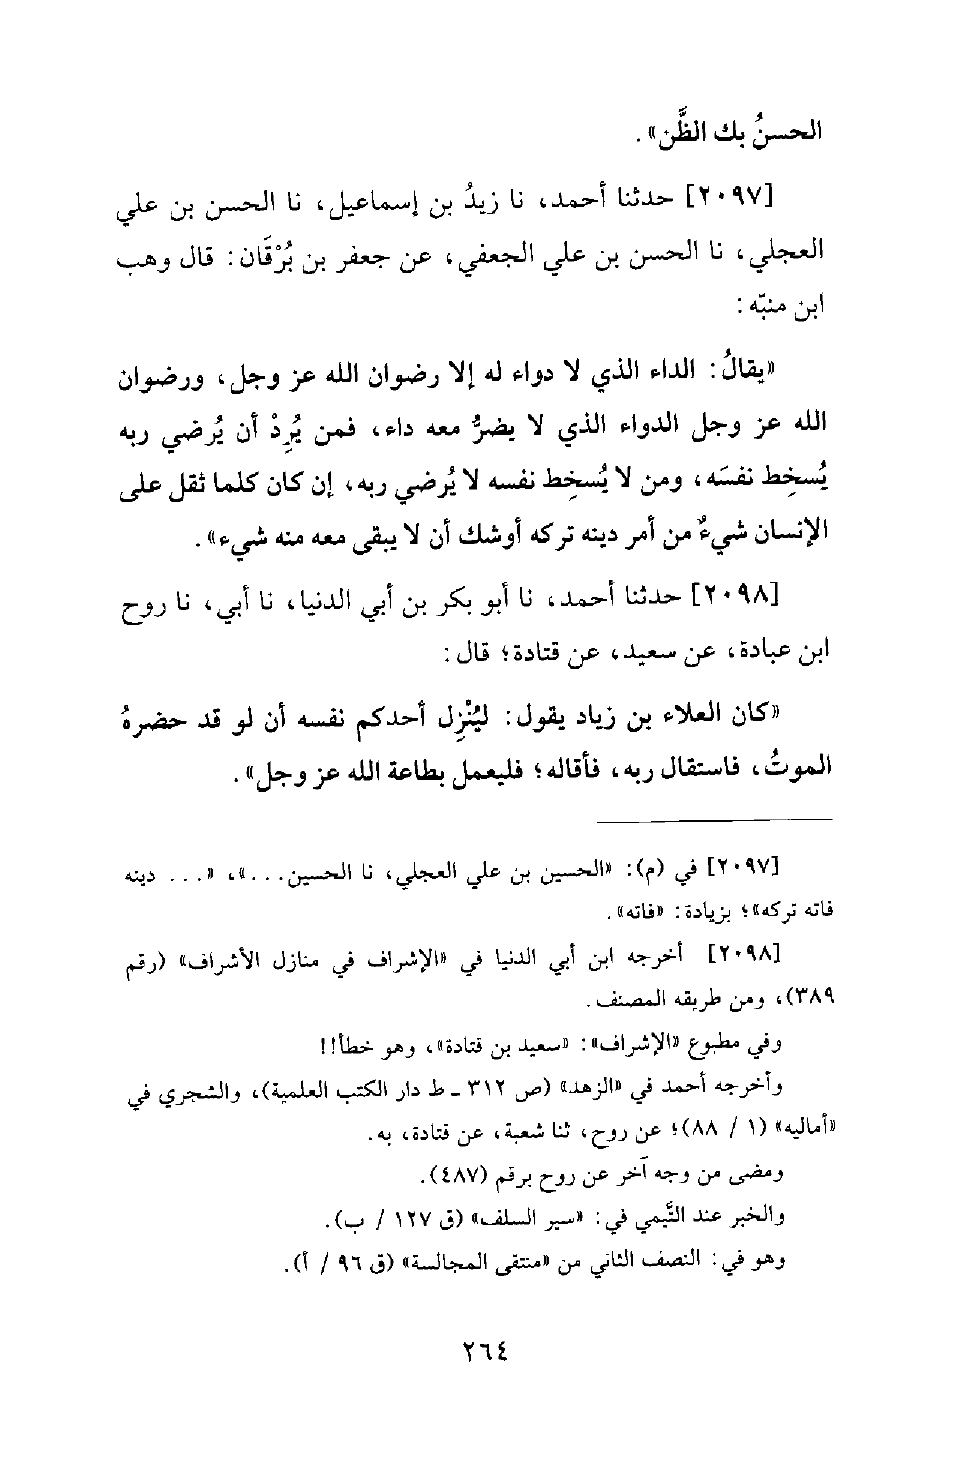 الحسنُ بك الظَّن» .
[٢٠٩٧] حدثنا أحمد، نا زيدُ بن إسماعيل، نا الحسن بن علي
العجلي، نا الحسن بن علي الجعفي، عن جعفر بن بُرْقَان: قال وهب
ابن منبّه:
«يقالُ: الداء الذي لا دواء له إلا رضوان الله عز وجل، ورضوان
الله عز وجل الدواء الذي لا يضرُّ معه داء، فمن يُرِدْ أن يُرضي ربه
يُسخِط نفسَه، ومن لا يُسخِط نفسه لا يُرضي ربه، إن كان كلما ثقل على
الإنسان شيءٌ من أمر دينه تركه أوشك أن لا يبقى معه منه شيء» .
[٢٠٩٨] حدثنا أحمد، نا أبو بكر بن أبي الدنيا، نا أبي، نا روح
ابن عبادة، عن سعيد، عن قتادة؛ قال:
«كان العلاء بن زياد يقول: ليُنْزِل أحدكم نفسه أن لو قد حضرهُ
الموتُ، فاستقال ربه، فأقاله؛ فليعمل بطاعة الله عز وجل» .
[٢٠٩٧] في (م): «الحسين بن علي العجلي، نا الحسين...»، «... دينه
فاته تركه»؛ بزيادة: «فاته» .
[٢٠٩٨] أخرجه ابن أبي الدنيا في «الإشراف في منازل الأشراف» (رقم
٣٨٩)، ومن طريقه المصنف .
وفي مطبوع «الإشراف»: «سعيد بن قتادة»، وهو خطأ!!
وأخرجه أحمد في «الزهد» (ص ٣١٢ ـ ط دار الكتب العلمية)، والشجري في
«أماليه» (١ / ٨٨)؛ عن روح، ثنا شعبة، عن قتادة، به.
ومضى من وجه آخر عن روح برقم (٤٨٧).
والخبر عند التَّيمي في: «سير السلف» (ق ١٢٧ / ب).
وهو في: النصف الثاني من «منتقى المجالسة» (ق ٩٦ / أ).
٢٦٤